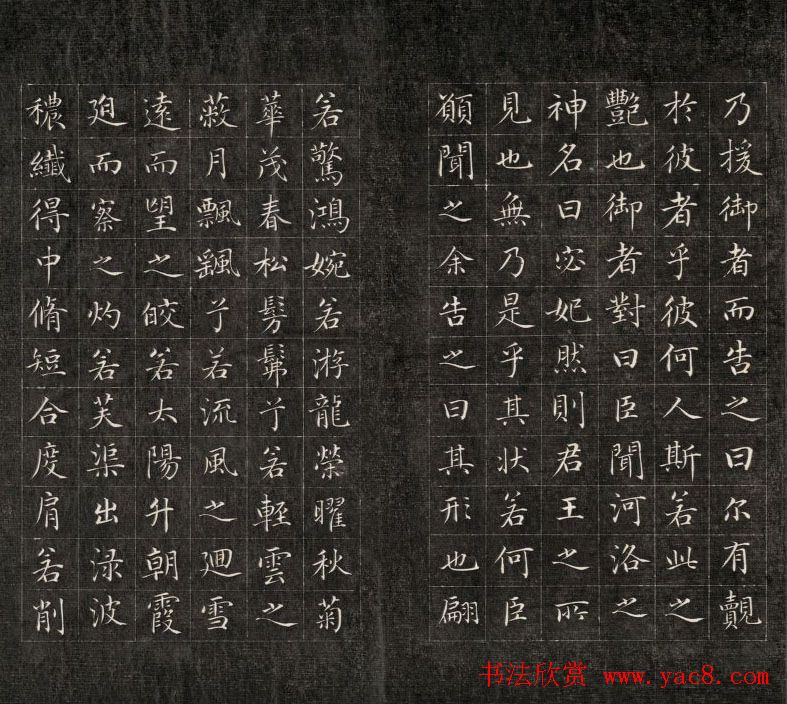 乃援御者而告之曰尔有覿
於彼者乎彼何人斯若此之
艷也御者對曰臣聞河洛之
神名曰宓妃然則君王之所
見也無乃是乎其状若何臣
願聞之余告之曰其形也翩
若驚鴻婉若游龍榮曜秋菊
華茂春松髣髴兮若輕雲之
蔽月飄颻兮若流風之迴雪
遠而望之皎若太陽升朝霞
迫而察之灼若芙渠出渌波
穠纖得中脩短合度肩若削
书法欣赏 www.yac8.com